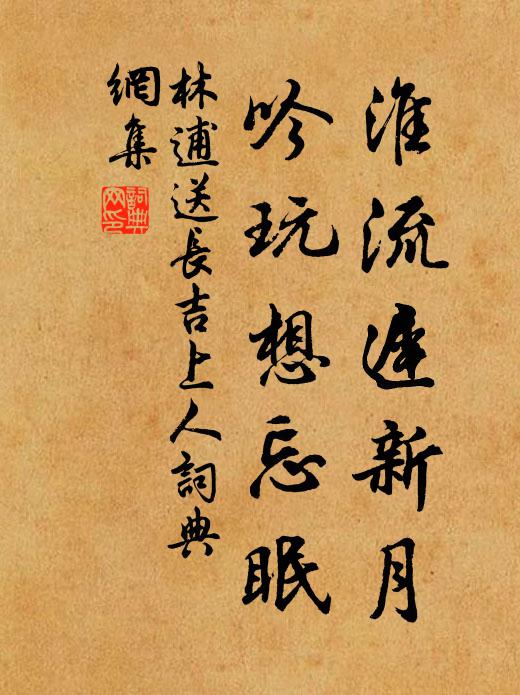 淮流遲新月
吟玩想忘眠
林逋送長吉上人詞典
網集
詞典網印